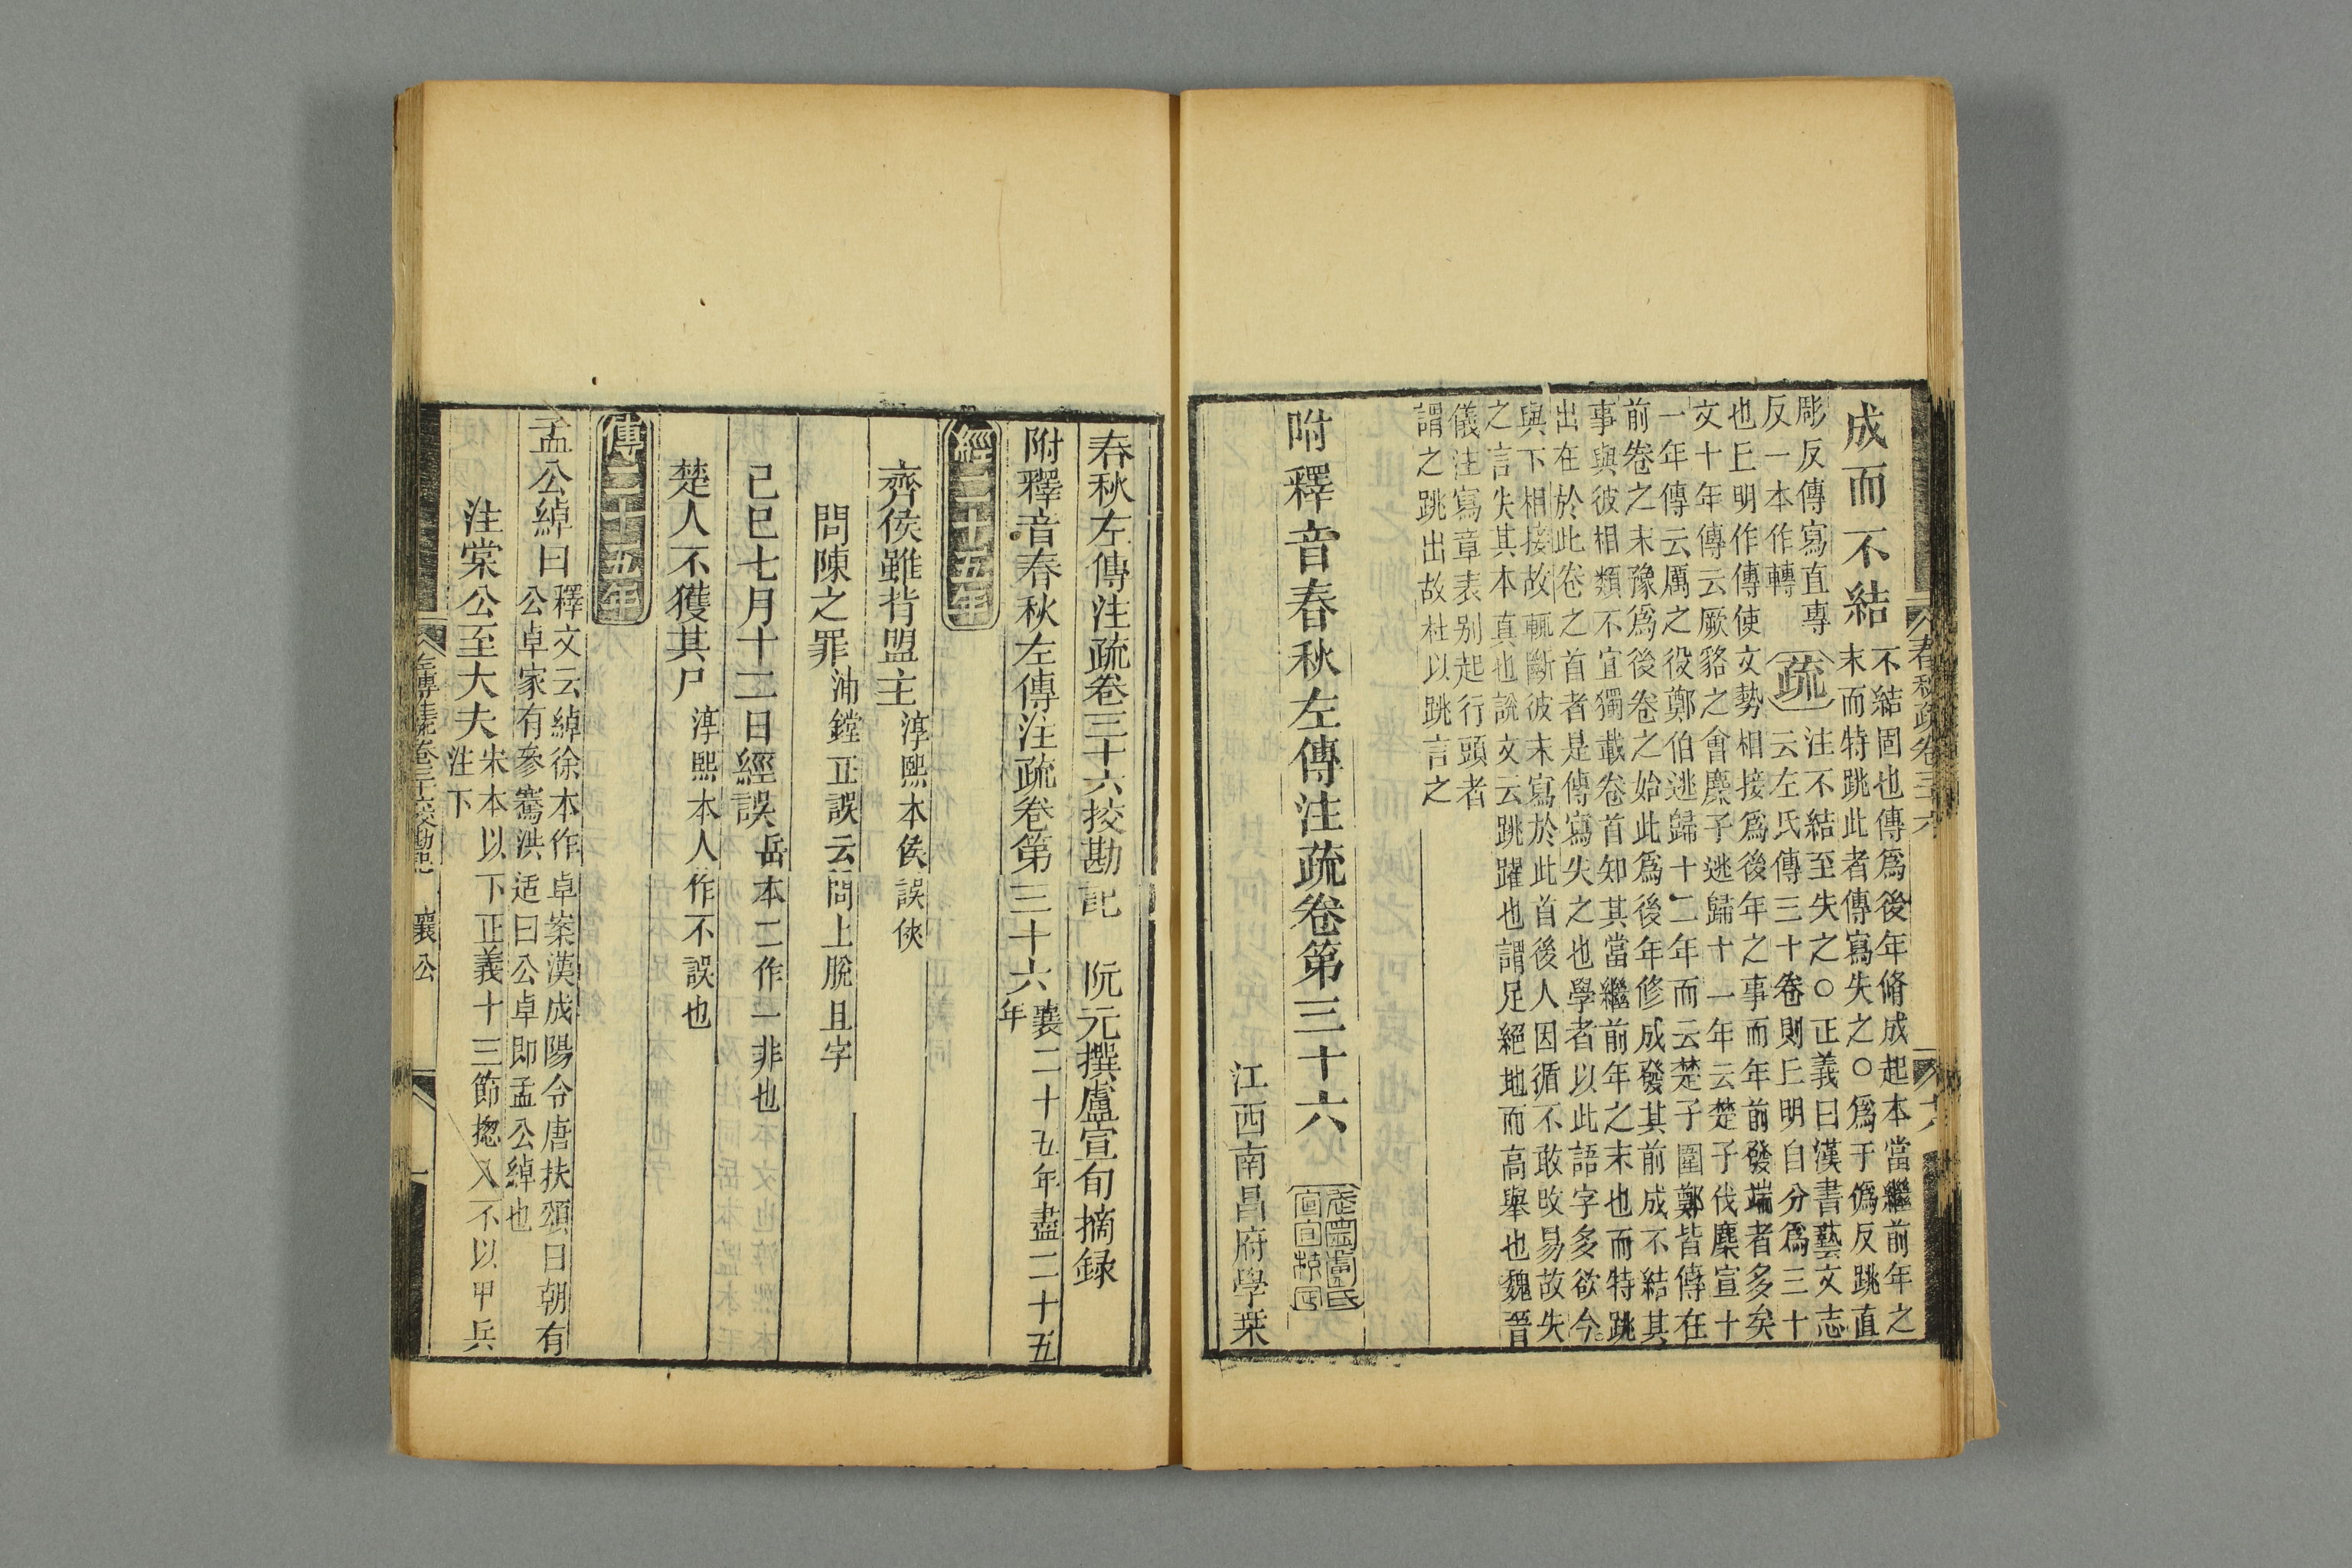 成而不結
不結固也傳爲後年脩成起本當繼前年之
末而特跳此者傳寫失之○爲于僞反跳直
彫反傳寫直專
反一本作轉
疏
注不結至失之○正義曰漢書藝文志
云左氏傳三十卷則丘明自分爲三十
也丘明作傳使文勢相接爲後年之事而年前發端者多矣
文十年傳云厥貉之會麇子逃歸十一年云楚子伐麇宣十
一年傳云厲之役鄭伯逃歸十二年而云楚子圍鄭皆傳在
前卷之末豫爲後卷之始此爲後年修成發其前成不結其
事與彼相類不宜獨載卷首知其當繼前年之末也而特跳
出在於此卷之首者是傳寫失之也學者以此語字多欲令
與下相接故輒斷彼末寫於此首後人因循不敢改易故失
之言失其本真也說文云跳躍也謂足絕地而高舉也魏晉
儀注寫章表别起行頭者
謂之跳出故杜以跳言之
附釋音春秋左傳注疏卷第三十六
江西南昌府學栞
春秋疏卷三十六
春秋左傳注疏卷三十六挍勘記 阮元撰盧宣旬摘録
附釋音春秋左傳注疏卷第三十六
襄二十五年盡二十五
年
經二十五年
齊侯雖背盟主 淳熙本侯誤俠
問陳之罪 浦鏜正誤云問上脫且字
己巳七月十二日經誤 岳本二作一非也
楚人不獲其尸 淳熙本人作不誤也
傳二十五年
孟公綽曰
釋文云綽徐本作卓案漢成陽令唐扶頌曰朝有
公卓家有參騫洪适曰公卓即孟公綽也
注棠公至大夫
宋本以下正義十三節揔入不以甲兵
注下
襄公